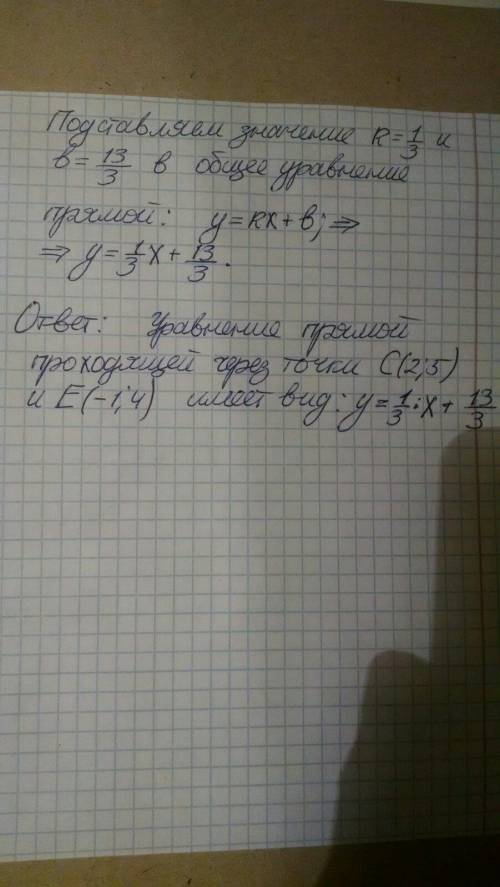 Подставляем значение k = 1/3 и
b = 13/3 в общее уравнение
прямой: y = kx + b; ⇒
⇒ y = 1/3 x + 13/3.
Ответ: Уравнение прямой
проходящей через точки C(2;5)
и E(-1;4) имеет вид: y = 1/3 · x + 13/3